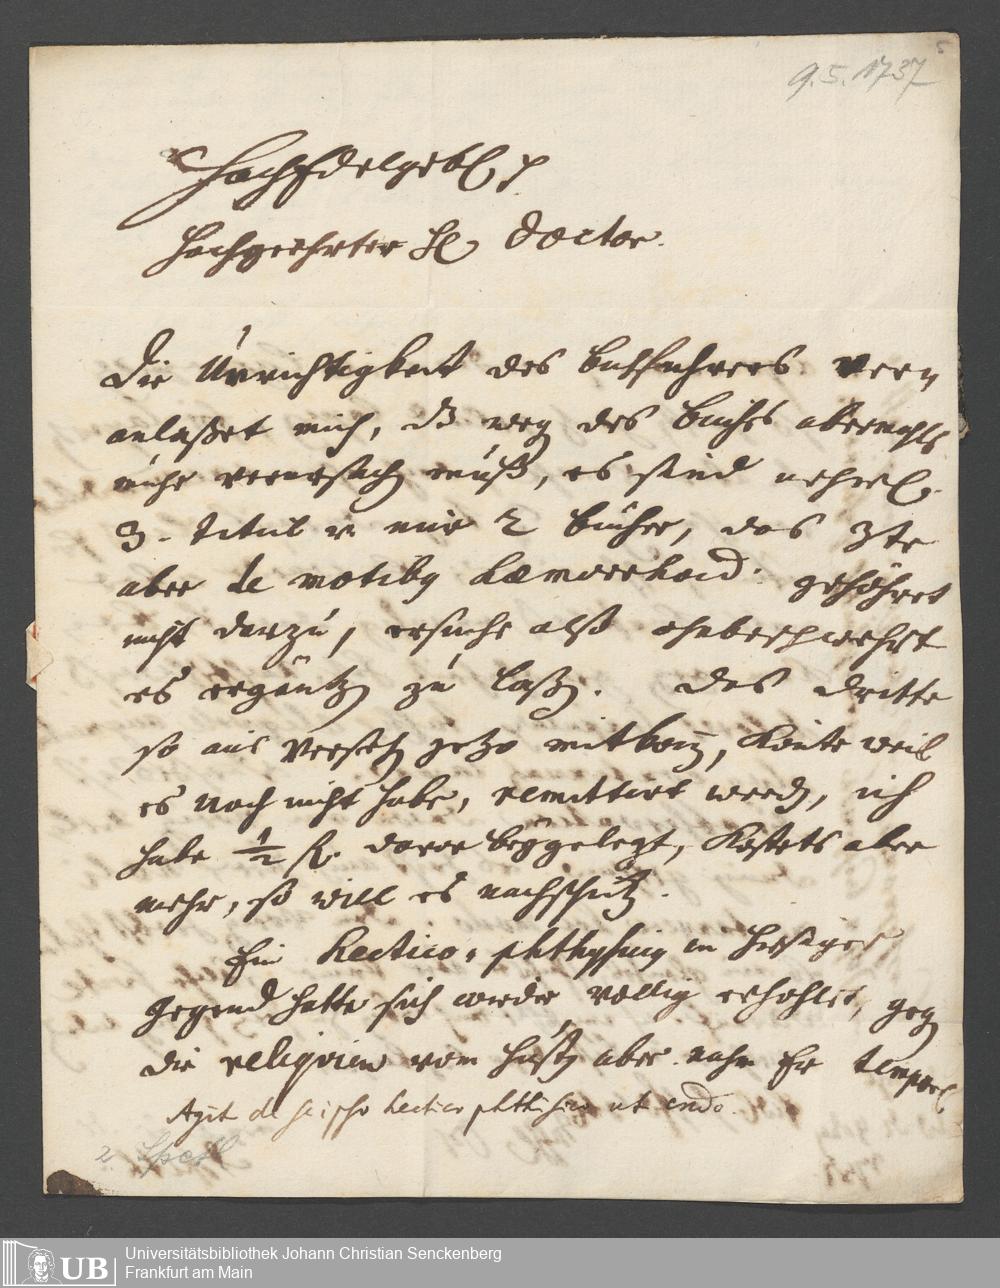 9.5.1737
HochEdelgebl p
Hochgeehrter H Doctor.
Die Unrichtigkeit des buchführers veran
anlaßet mich, dß weg des buchs abermahls
mühe verursach muß, es sind nehml.
3. titul u. nur 2 bücher, das 3te
aber de motiby haemorrhoid. gehöhret
nicht darzu, ersuche alß ohnbeschwehrt
es ergäntz zu laß. das dritte
so aus verseh jetzo mitkom, könte weil
es noch nicht habe, remittirt werd, ich
habe ½ fl. davor beygelegt, kostets aber
mehr, so will es nachschick.
Ein hectico-phthysicus in hiesiger
gegend hatte sich wieder völlig erhohlet, geg
die reliquien vom hust aber nahm Er
Agit de se ipso hectico phthisico ut credo.
2. Spoſl
Universitätsbibliothek Johann Christian Senckenberg
Frankfurt am Main
UB